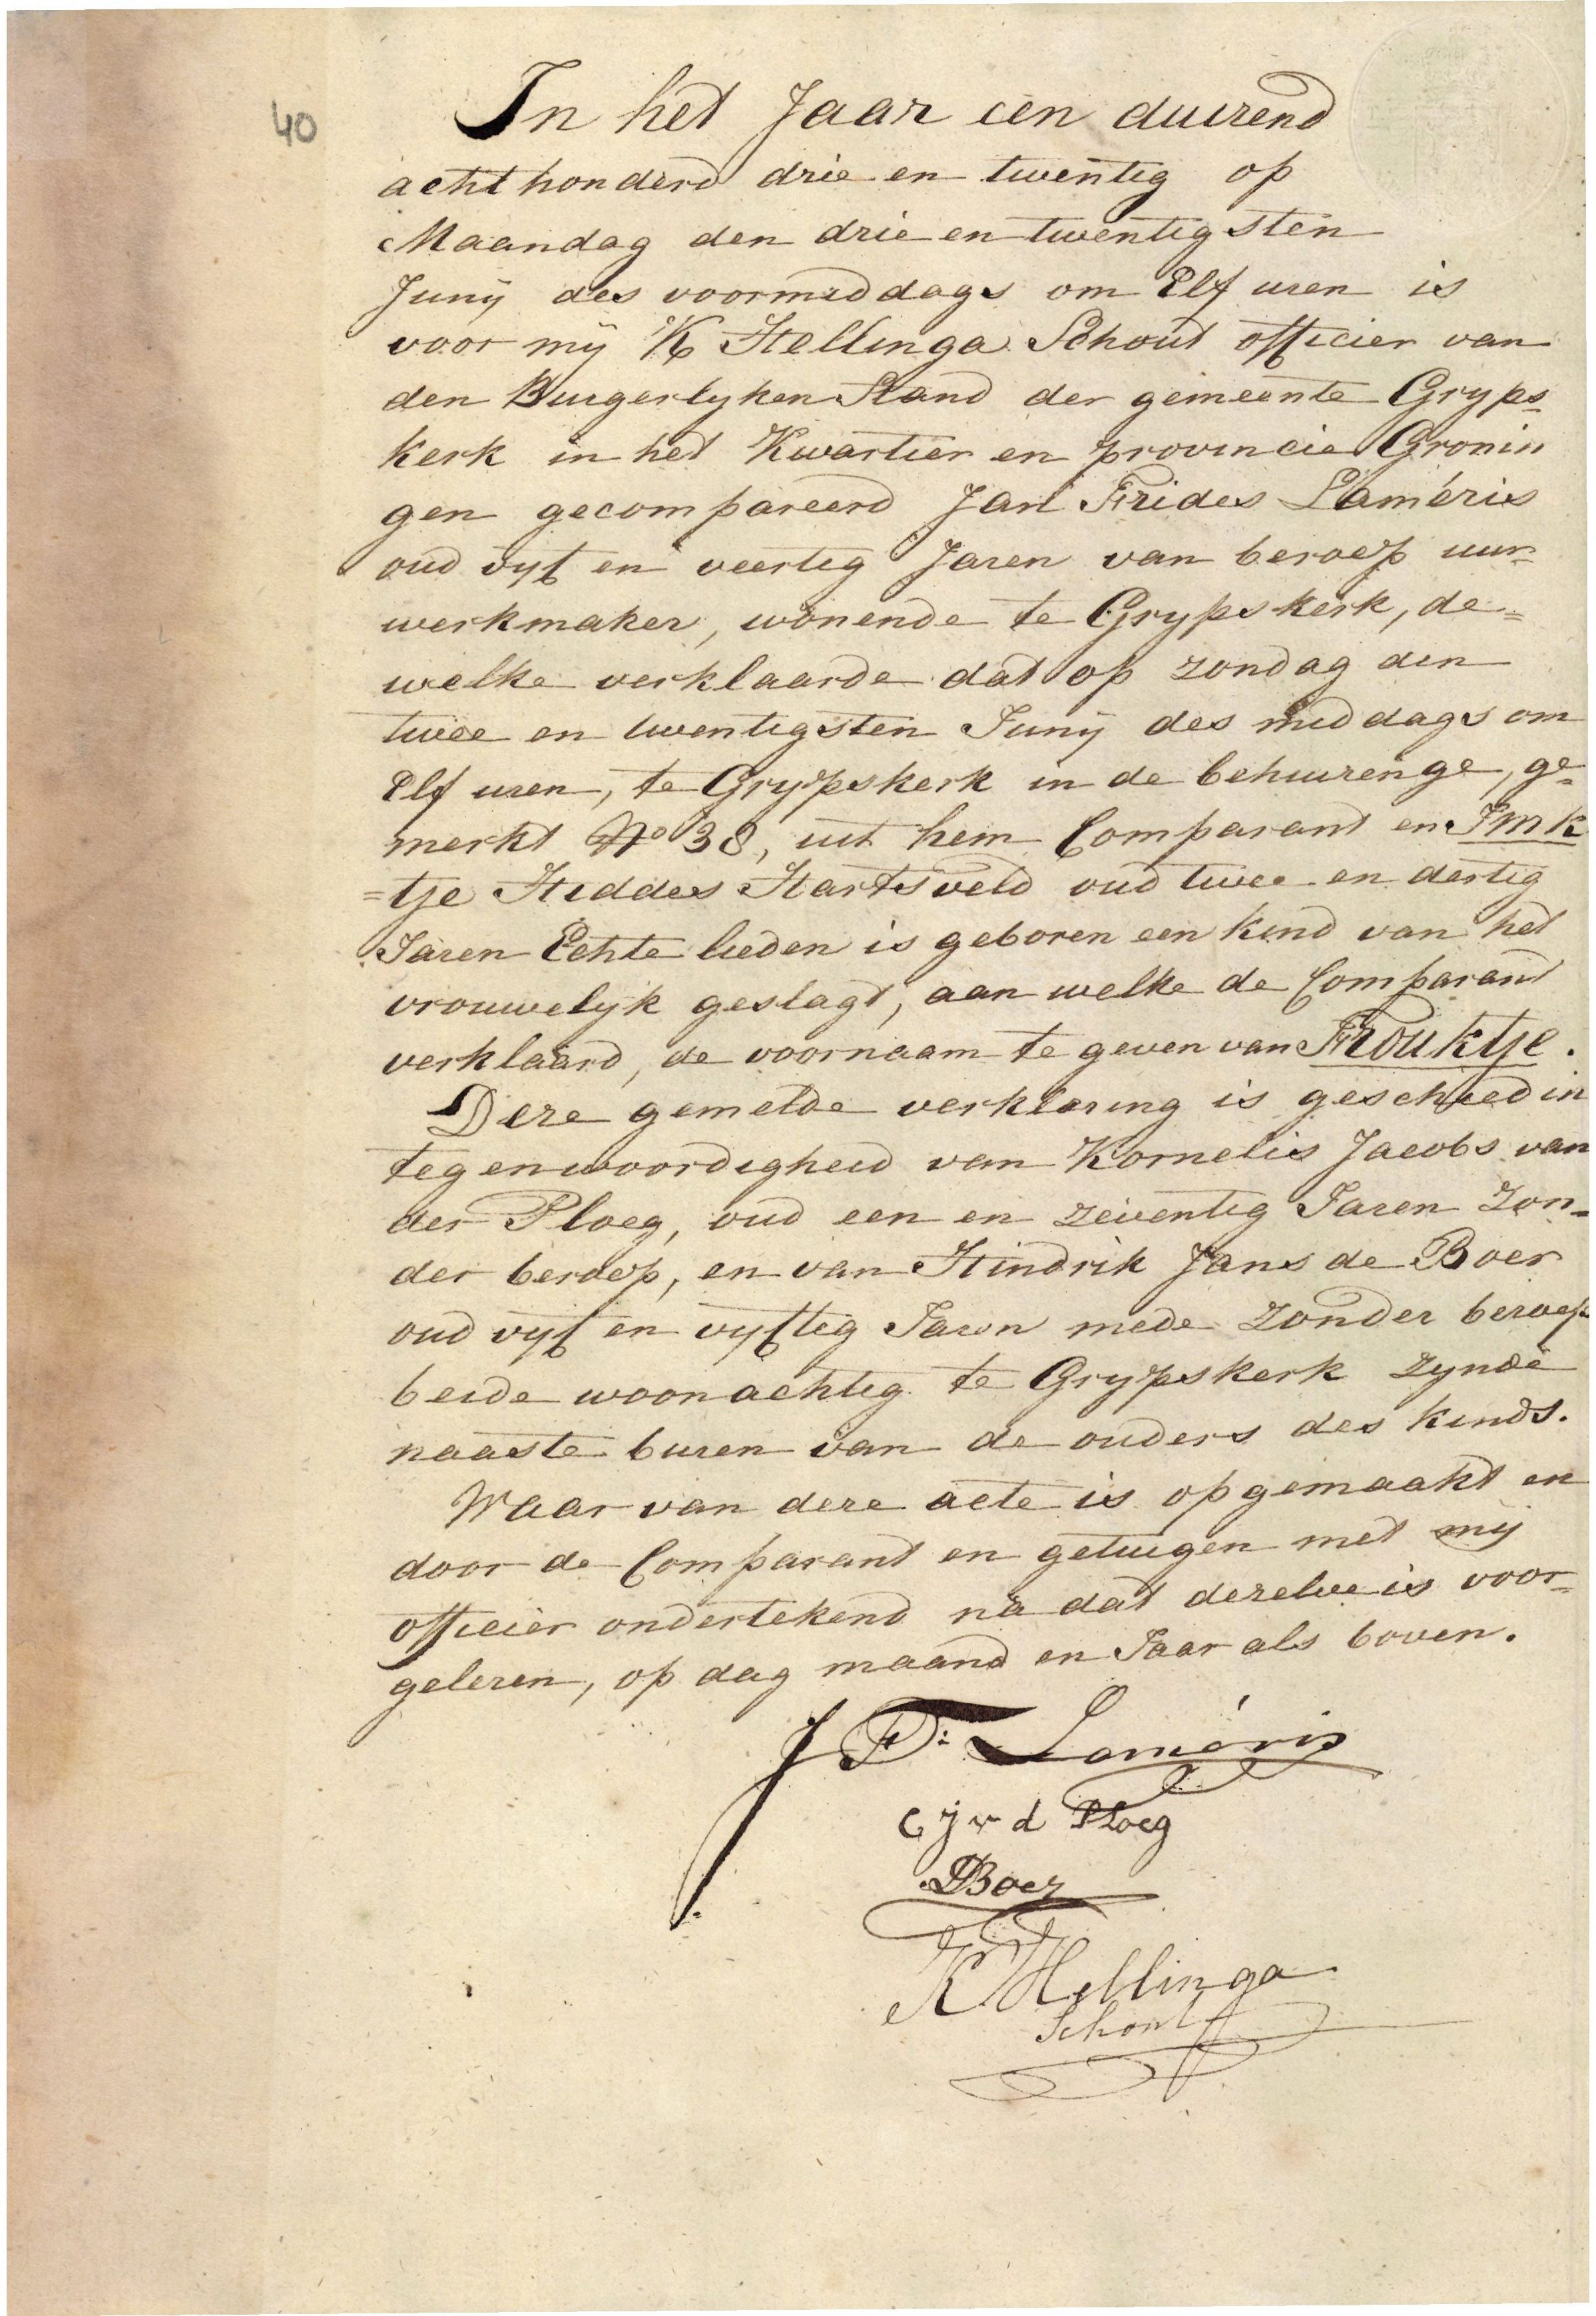 40
In het Jaar een duizend
achthonderd drie en twentig op
Maandag den drie en twentigsten
Junij des voormiddags om Elf uren is
voor mij K Hellinga Schout officier van
den Burgerlyken Stand der gemeente Gryps-
kerk in het Kwartier en provincie Gronin
gen gecompareerd Jan Frides Laméris
oud vyf en veertig Jaren van beroep uur-
werkmaker, wonende te Grypskerk, de=
welke verklaarde dat op zondag den
twee en twentigsten Junij des middags om
Elf uren, te Grypskerk in de behuizenge, ge-
merkt No 38, uit hem Comparant en Imk
=tje Heddes Hartsveld oud twee en dertig
Jaren Echte lieden is geboren een kind van het
vrouwelyk geslagt, aan welke de Comparant
verklaard, de voornaam te geven van Frouktje.
Deze gemelde verklaring is geschied in
tegenwoordigheid van Kornelis Jacobs van
der Ploeg, oud een en zeventig Jaren zon-
der beroep, en van Hindrik Jans de Boer
oud vyf en vyftig Jaren mede zonder beroep
beide woonachtig te Grypskerk zynde
naaste buren van de ouders des kinds.
Waar van deze acte is opgemaakt en
door de Comparant en getuigen met mij
officier ondertekend na dat dezelve is voor-
gelezen, op dag maand en Jaar als boven.
J F: Laméris
C J v d Ploeg
Boer
K Hellinga
Schout